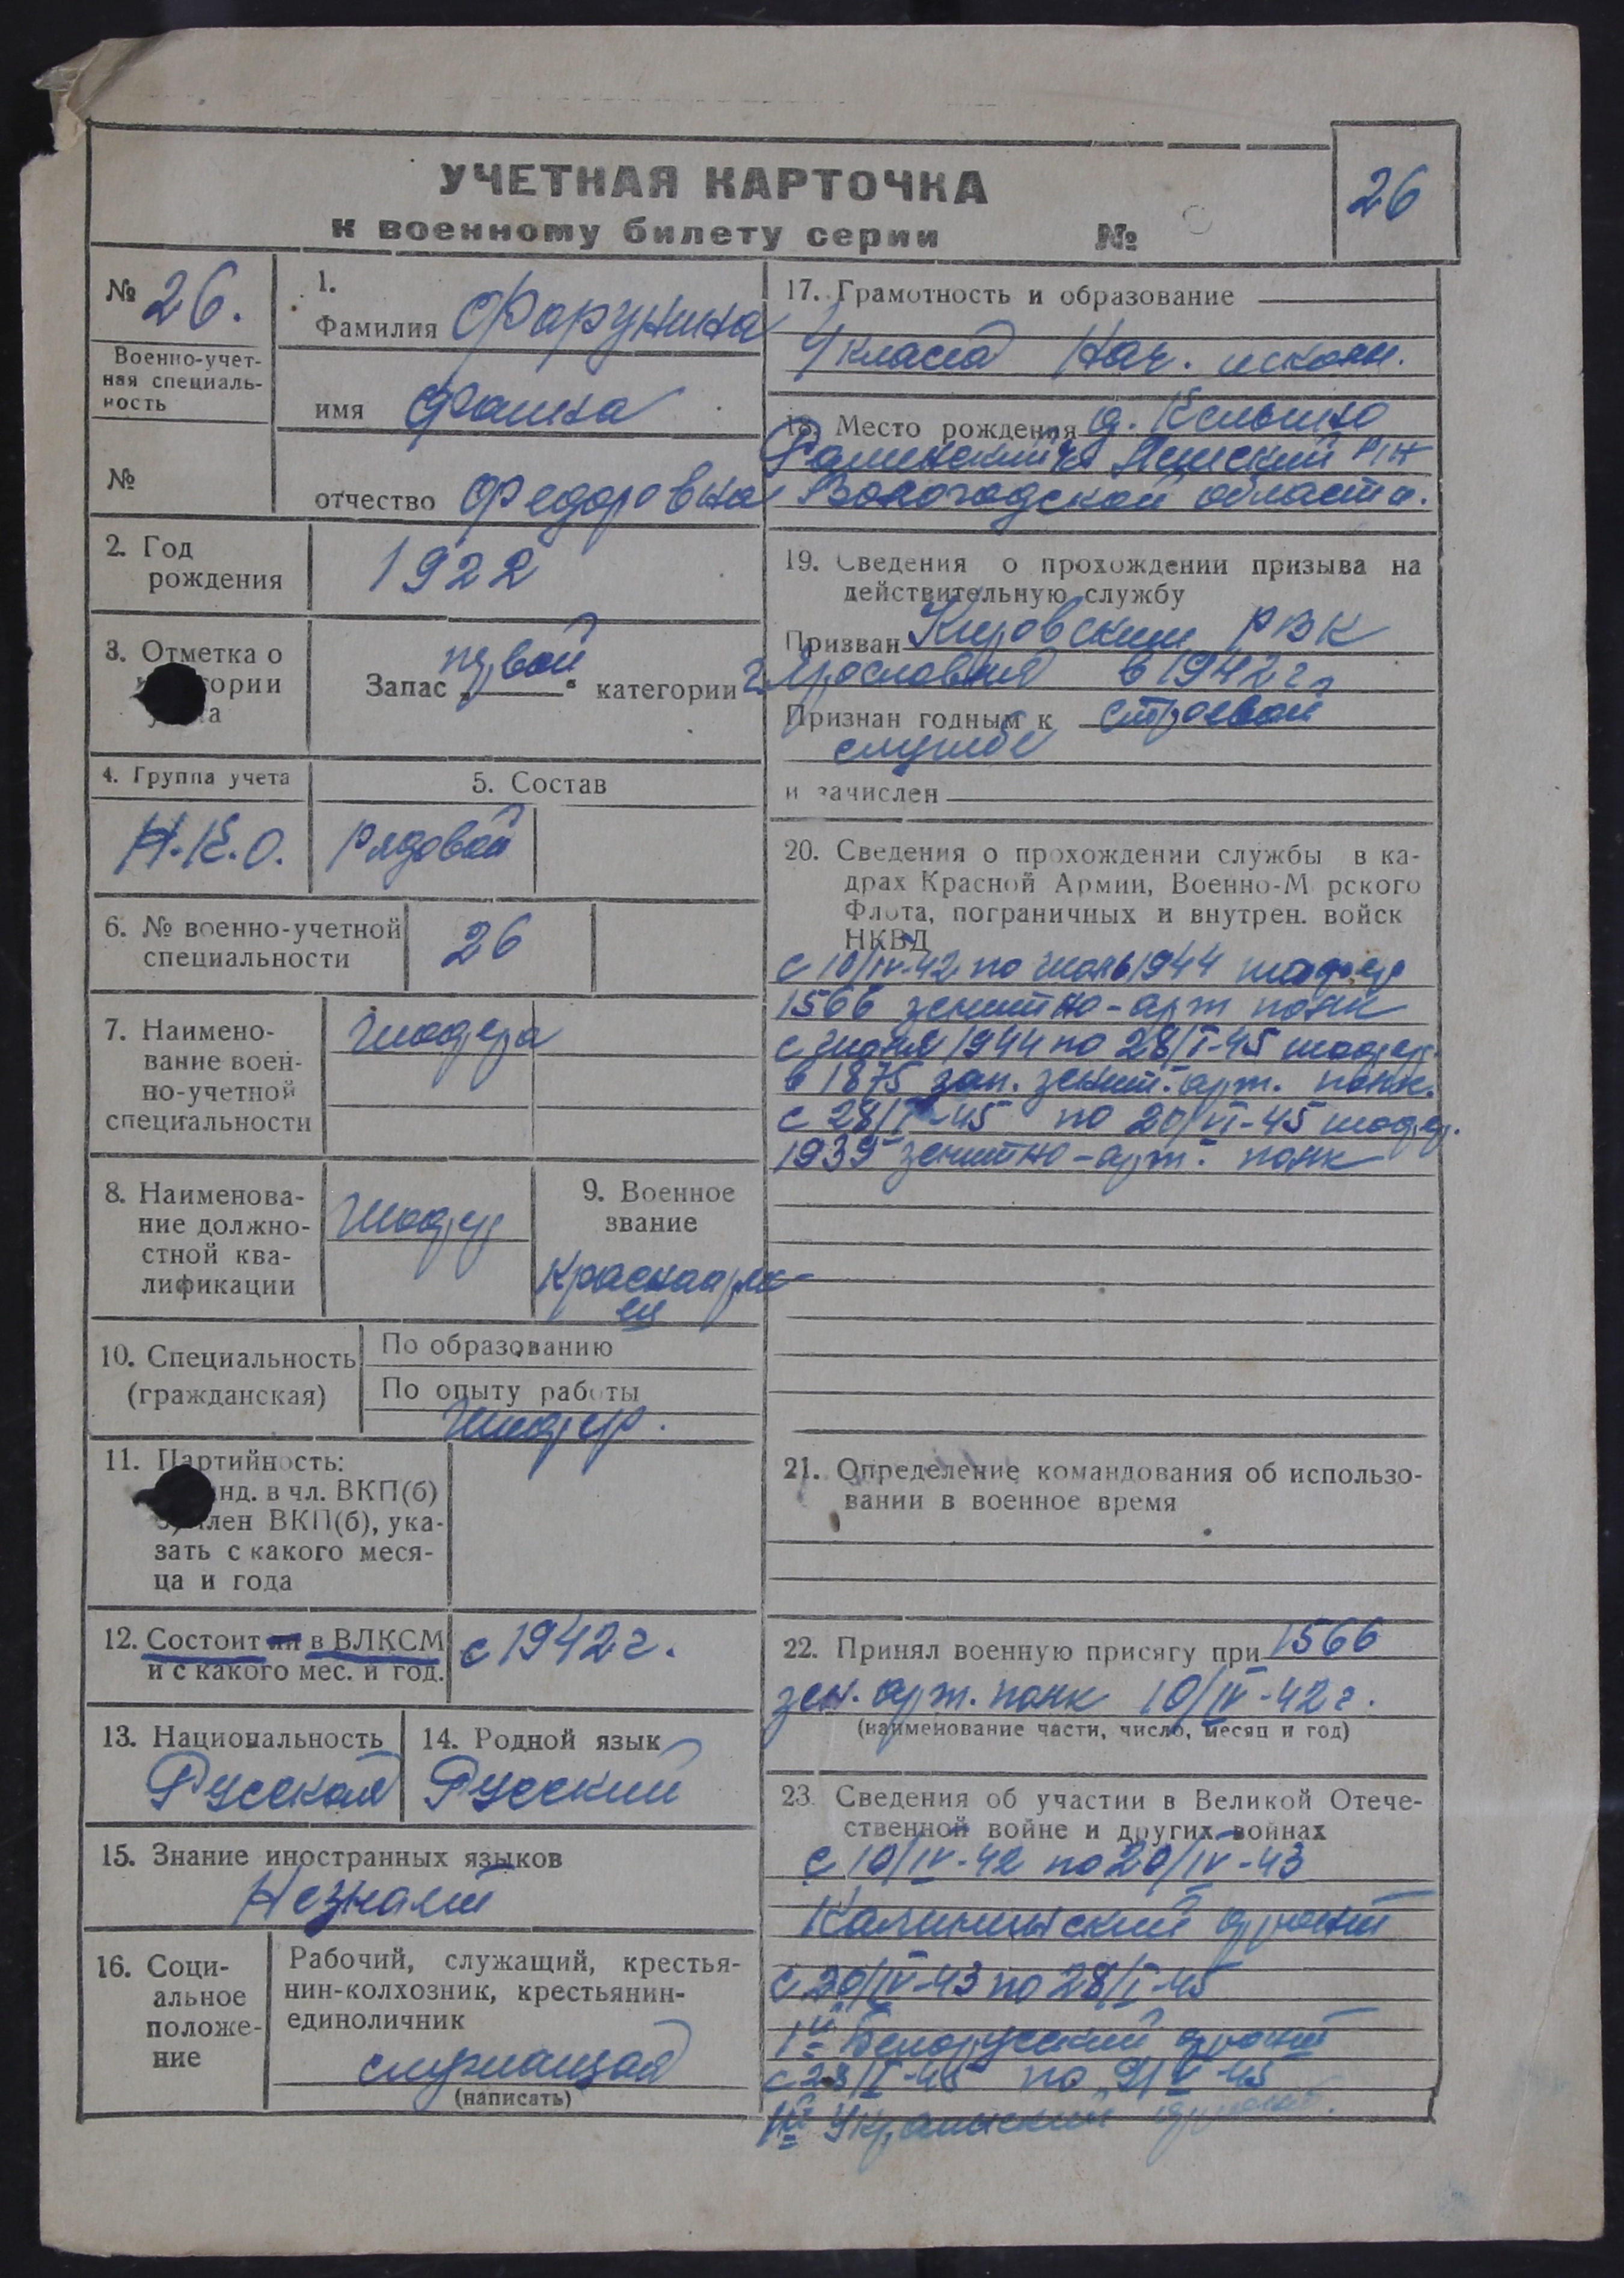 УЧЕТНАЯ КАРТОЧКА
к военному билету серии №
26
№ 26.
Военно-учет-
ная специаль-
ность
№
1.
Фамилия Фарунина
имя Фаина
отчество Федоровна
2. Год
рождения
1922
3. Отметка о
Запас „первой“ категории
4. Группа учета
Н.К.О.
5. Состав
Рядовой
6. № военно-учетной
специальности
26
7. Наимено-
вание воен-
но-учетной
специальности
Шофера
8. Наименова-
ние должно-
стной ква-
лификации
Шофер
9. Военное
звание
Красноарме-
ец
10. Специальность
(гражданская)
По образованию
По опыту работы
Шофер.
11. Партийность:
анд. в чл. ВКП(б)
член ВКП(б), ука-
зать с какого меся-
ца и года
12. Состоит ли в ВЛКСМ
и с какого мес. и год.
с 1942 г.
13. Национальность
Русская
14. Родной язык
Русский
15. Знание иностранных языков
Незнает
16. Соци-
альное
положе-
ние
Рабочий, служащий, крестья-
нин-колхозник, крестьянин-
единоличник
служащая
(написать)
17. Грамотность и образование
4 класса Нач. школы.
18. Место рождения д.
Вологодской области.
19. Сведения о прохождении призыва на
действительную службу
Призван Кировским РВК
г Ярославля в 1942 г.
Признан годным к строевой
службе
и зачислен
20. Сведения о прохождении службы в ка-
драх Красной Армии, Военно-М рского
Флота, пограничных и внутрен. войск
НКВД
с 10/IV-42 по июнь 1944 шофер
1566 зенитно-арт полк
с июня 1944 по 28/I-45 шофер.
в 1875 зап. зенит. арт. полк.
с 28/I-45 по 20/VI-45 шофер.
1939 зенитно-арт. полк
21. Определение командования об использо-
вании в военное время
22. Принял военную присягу при 1566
зен. арт. полк 10/IV-42 г.
(наименование части, число, месяц и год)
23. Сведения об участии в Великой Отече-
ственной войне и других войнах
с 10/IV-42 по 20/IV-43
Калининский фронт
с 20/IV-43 по 28/I-45
1й Белорусский фронт
с 28/I-45 по 9/V-45
Украинский фронт.